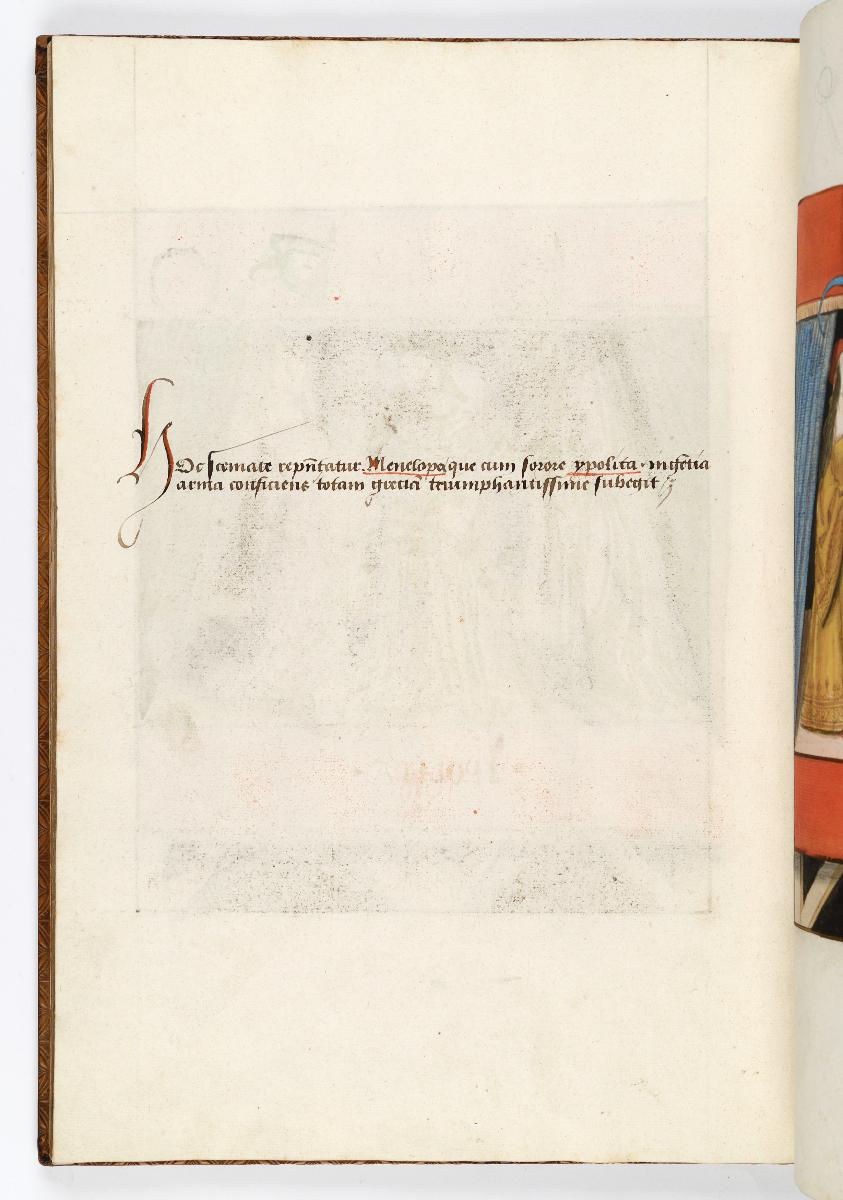 HOc scemate rep̄n̄tatur Menelopa que cum sorore ypolita · in
arma conficiens totam greciā triumphantissime subegit